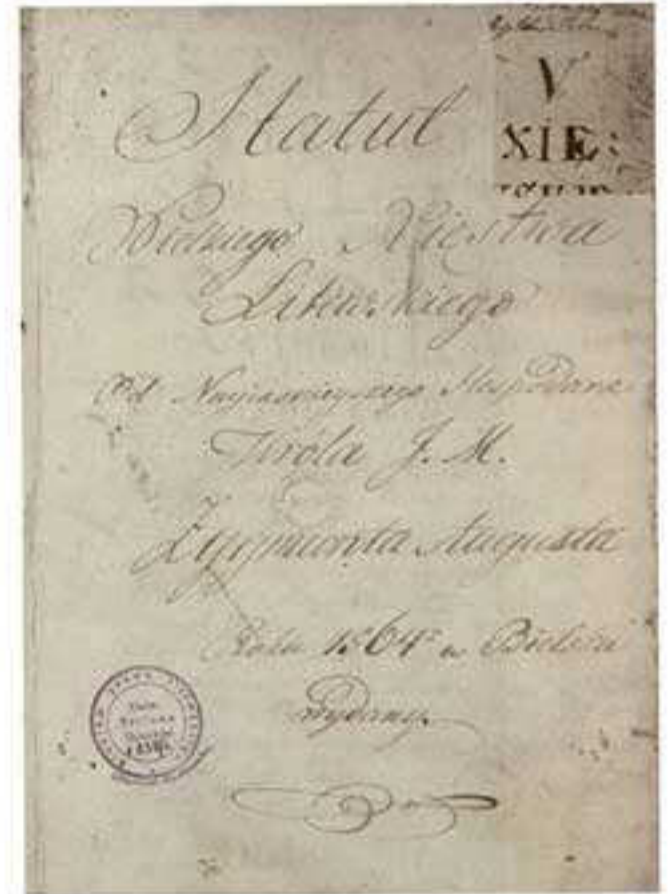 V
XIE:
Statut
Wielkiego Xięstwa
Litewskiego
Od Nayiaśnieyszego Hospodara
Króla J. M.
Zygmunta Augusta
Roku 1564º w Bielsku
wydany.